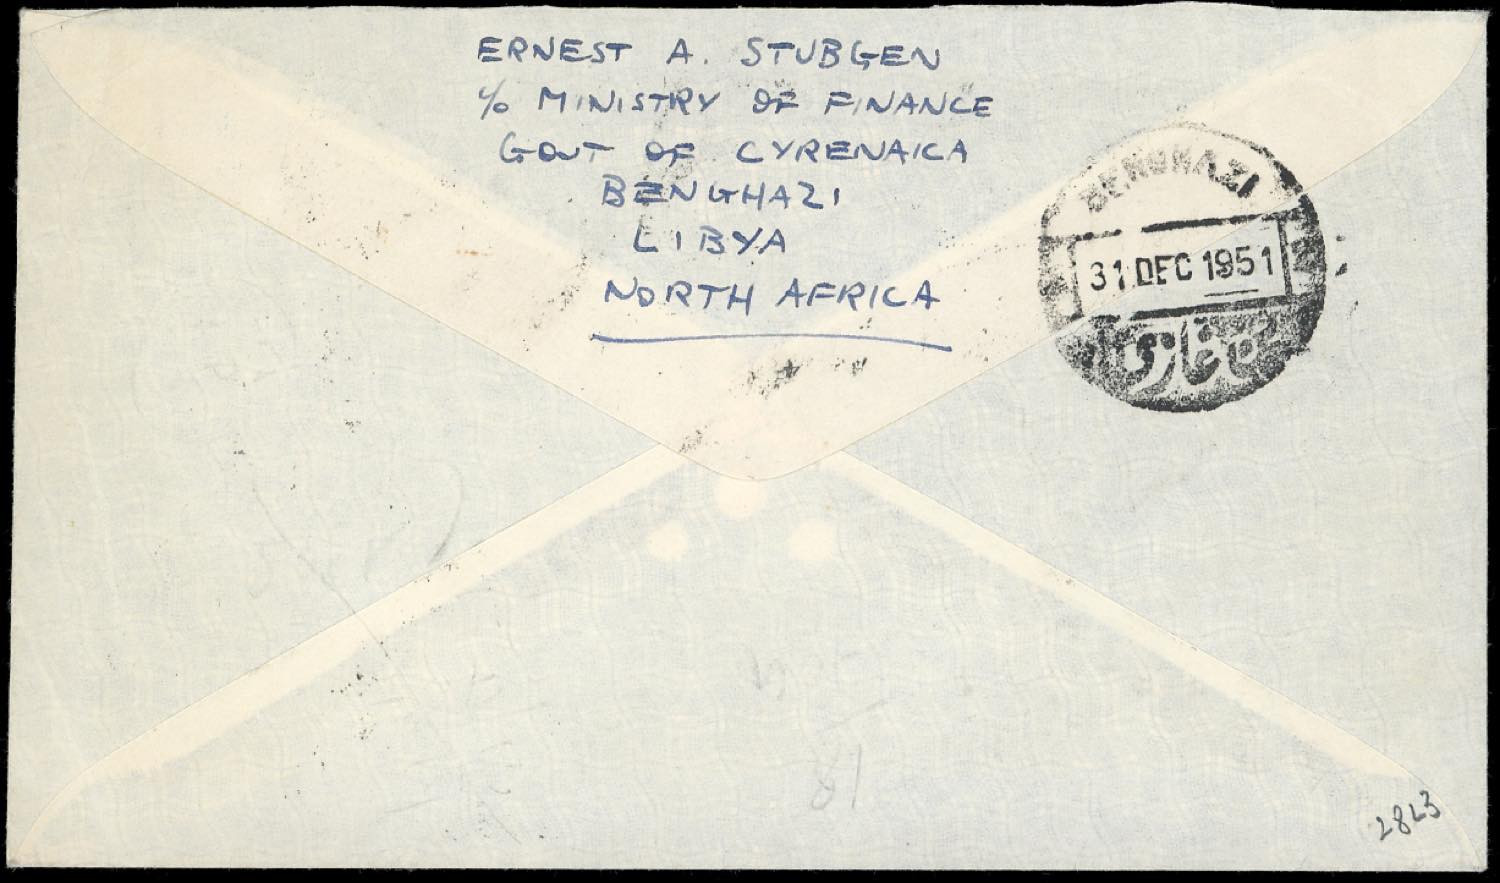 ERNEST A. STUBGEN
c/o MINISTRY OF FINANCE
GOVT OF CYRENAICA
BENGHAZI
LIBYA
NORTH AFRICA
BENGHAZI
31 DEC 1951
بن غازي
18
2823